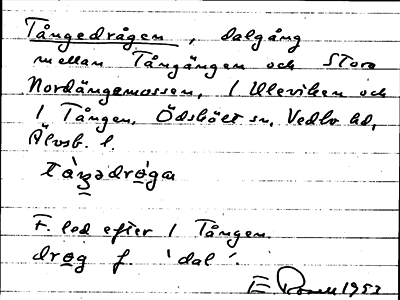 Tångedrågen, dalgång
mellan Tångängen och Stora
Nordängemossen, 1 Uleviken och
1 Tången. Ödskölt sn, Vedbo hd,
Älvsb. l.
tàŋədrǫga
F. led efter 1 Tången.
drǫg f. 'dal'.
E 1953